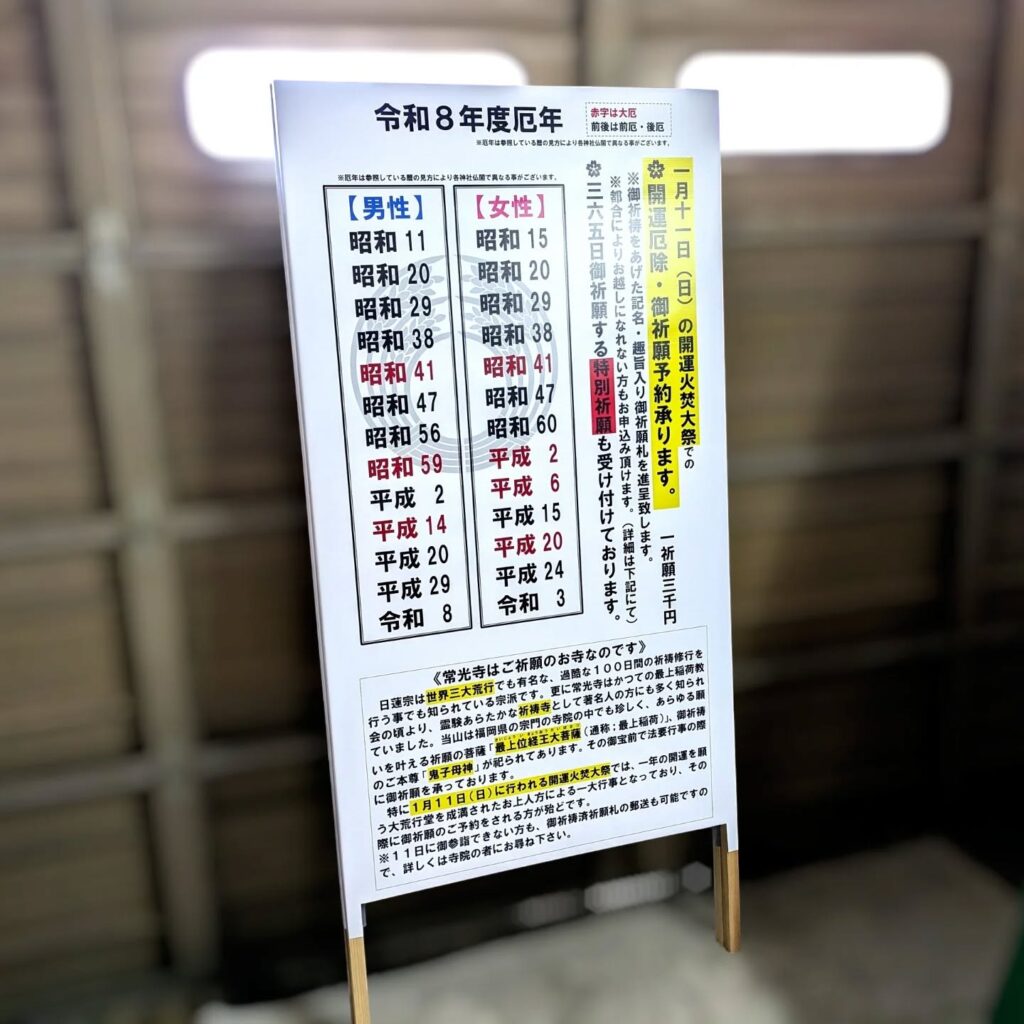 令和8年度厄年
赤字は大厄
前後は前厄・後厄
※厄年は参照している暦の見方により各神社仏閣で異なる事がございます。
※厄年は参照している暦の見方により各神社仏閣で異なる事がございます。
【男性】
昭和 11
昭和 20
昭和 29
昭和 38
昭和 41
昭和 47
昭和 56
昭和 59
平成 2
平成 14
平成 20
平成 29
令和 8
【女性】
昭和 15
昭和 20
昭和 29
昭和 38
昭和 41
昭和 47
昭和 60
平成 2
平成 6
平成 15
平成 20
平成 24
令和 3
一月十一日(日)の開運火焚大祭での
開運厄除・御祈願予約承ります。 一祈願三千円
※御祈祷をあげた記名・趣旨入り御祈願札を進呈致します。
※都合によりお越しになれない方もお申込み頂けます。(詳細は下記にて)
三六五日御祈願する特別祈願も受け付けております。
《常光寺はご祈願のお寺なのです》
日蓮宗は世界三大荒行でも有名な、過酷な100日間の祈祷修行を
行う事でも知られている宗派です。更に常光寺はかつての最上稲荷教
会の頃より、霊験あらたかな祈祷寺として著名人の方にも多く知られ
ていました。当山は福岡県の宗門の寺院の中でも珍しく、あらゆる願
いを叶える祈願の菩薩「最上位経王大菩薩(通称:最上稲荷)」、御祈祷
のご本尊「鬼子母神」が祀られてあります。その御宝前で法要行事の際
に御祈願を承っております。
特に1月11日(日)に行われる開運火焚大祭では、一年の開運を願
う大荒行堂を成満されたお上人方による一大行事となっており、その
際に御祈願のご予約をされる方が殆どです。
※11日に御参詣できない方も、御祈祷済祈願札の郵送も可能ですの
で、詳しくは寺院の者にお尋ね下さい。